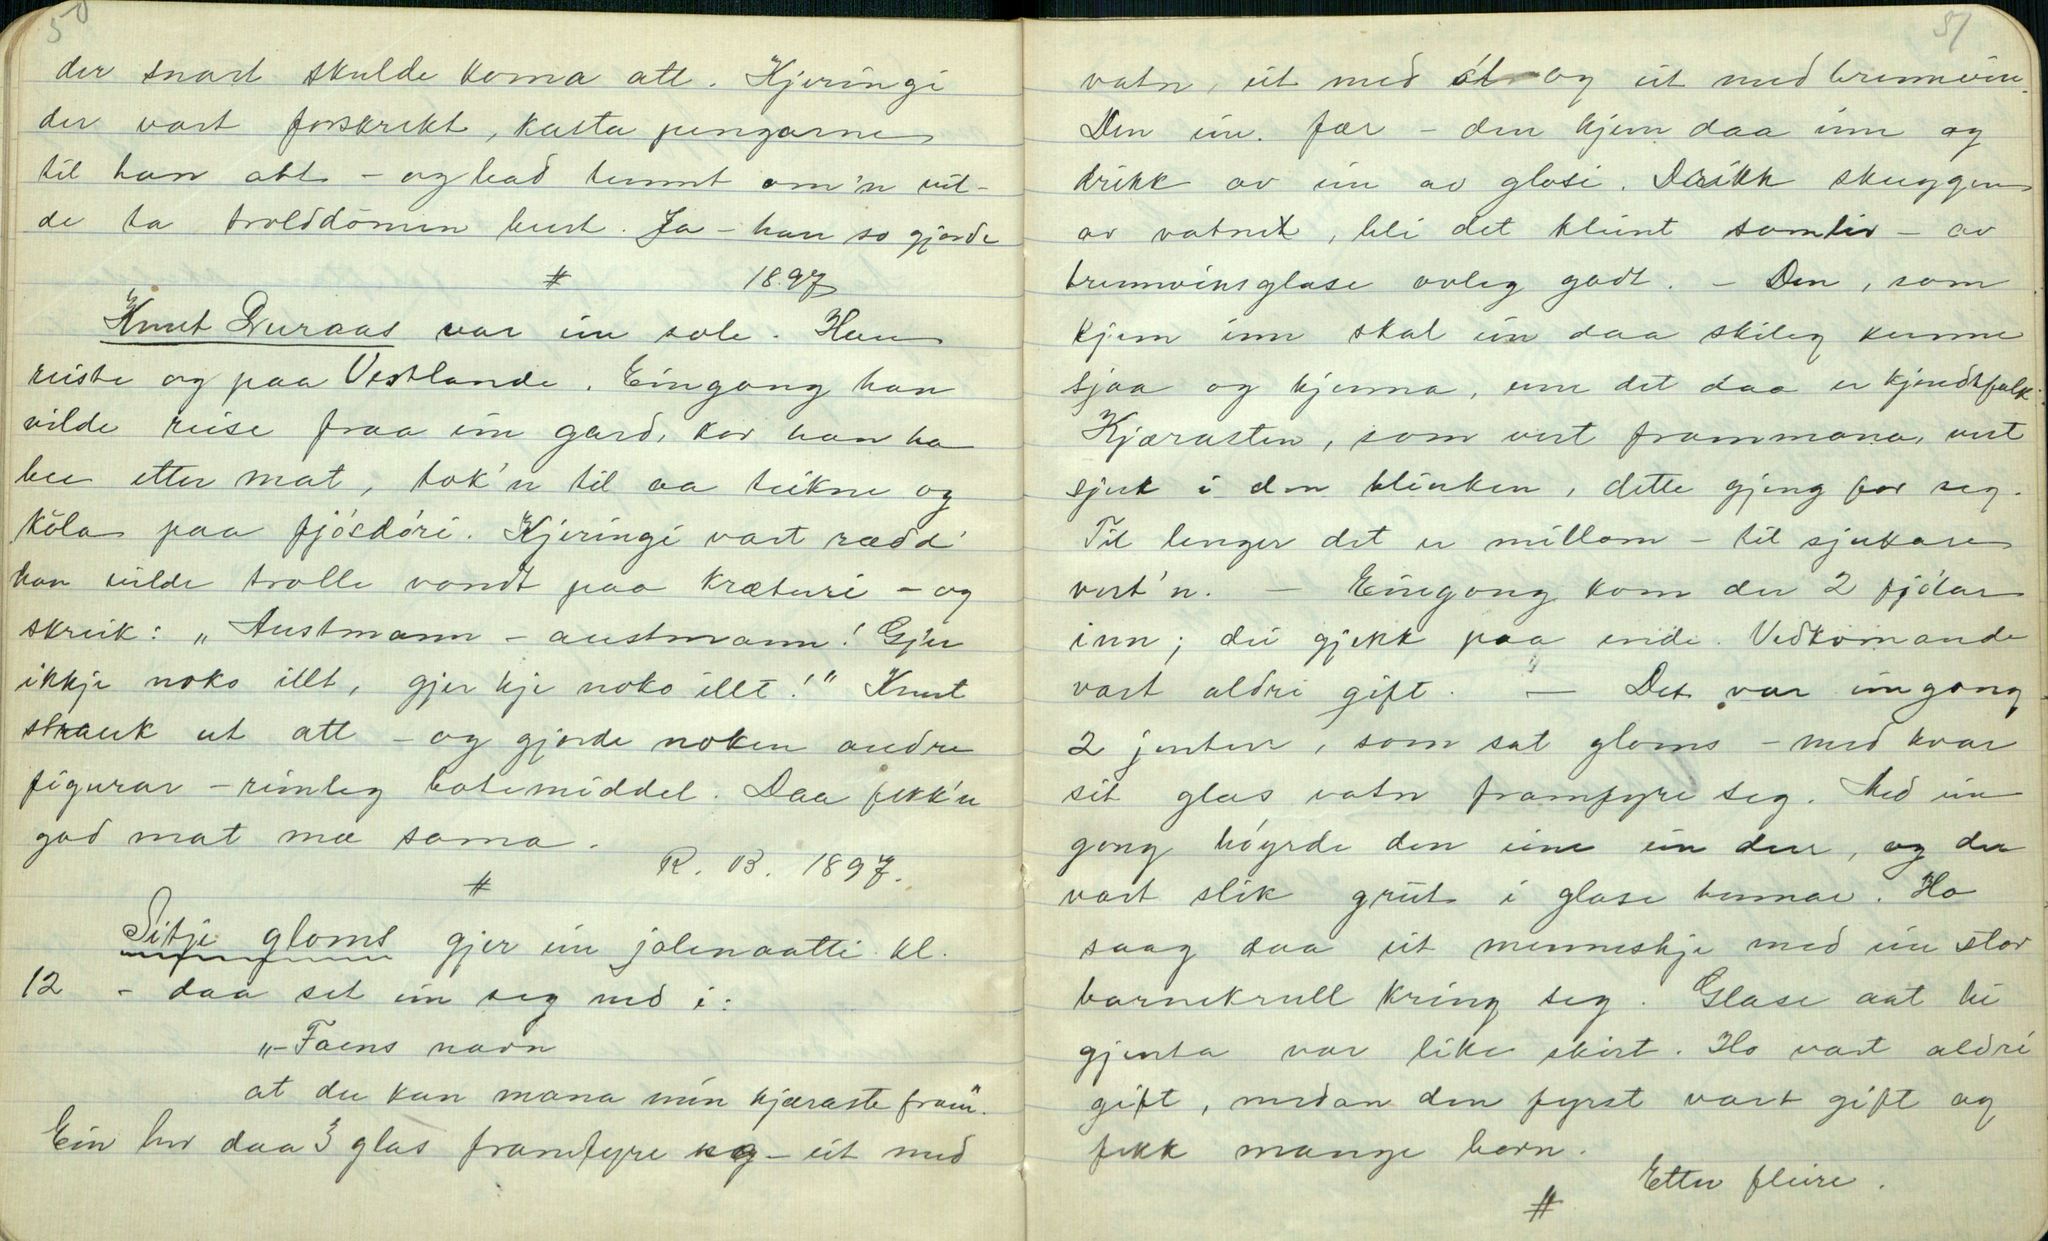 50
der snart skulde koma att. Kjeringi
der vart forskrekt, kasta pengarne
til han att - og bad tunnt om'n vil-
de ta trolddömen burt. Ja - han so gjorde
# 1897
Knut Duraas var ein sole. Han
reiste og paa Vestlande. Eingong han
vilde reise fraa ein gard, kor han ha
bee etter mat, tok'n til aa teikne og
kŏla paa fjósdóri. Kjeringi vart rædd'
han vilde trolle vondt paa kræturi - og
skreik: „Austmann - austmann! Gjer
ikkje noko illt, gjer kje noko illt!" Knut
strauk ut att - og gjorde noken andre
figurar - rimleg botemiddel. Daa fekk'n
god mat mæ soma.
R. B. 1897.
#
Sitje gloms gjer ein jolenaatti kl.
12 - daa set ein seg ned i:
„- Faens navn
at du kan mana min kjæraste fram".
Ein hev daa 3 glas framfyre seg - eit med
51
vatn, eit med ól og eit med brennvin.
Den ein fær - den kjem daa inn og
drikk av ein av glasi. Drikk skuggen
av vatnet, bli det kleint samliv - av
brennvinsglase ovleg godt. - Den, som
kjem inn skal ein daa skileg kunne
sjaa og kjenna, um det daa er kjendtfolk.
Kjærasten, som vert frammana, vert
sjuk i den blinken, dette gjeng for seg.
Til lenger det er millom - til sjukare
vert'n. - Eingong kom der 2 fjólar
inn; dei gjekk paa ende. Vedkomande
vart aldri gift. - Det var eingong
2 jenter, som sat gloms - med kvar
sit glas vatn framfyre seg. Med ein
gong hóyrde den eine ein dur, og der
vart slik grút i glase hennar. Ho
saag daa eit menneskje med ein stor
barnekrull kring seg. Glase aat hi
gjenta var like skirt. Ho vart aldri
gift, medan den fyrst vart gift og
fekk mange born.
Etter fleire.
#